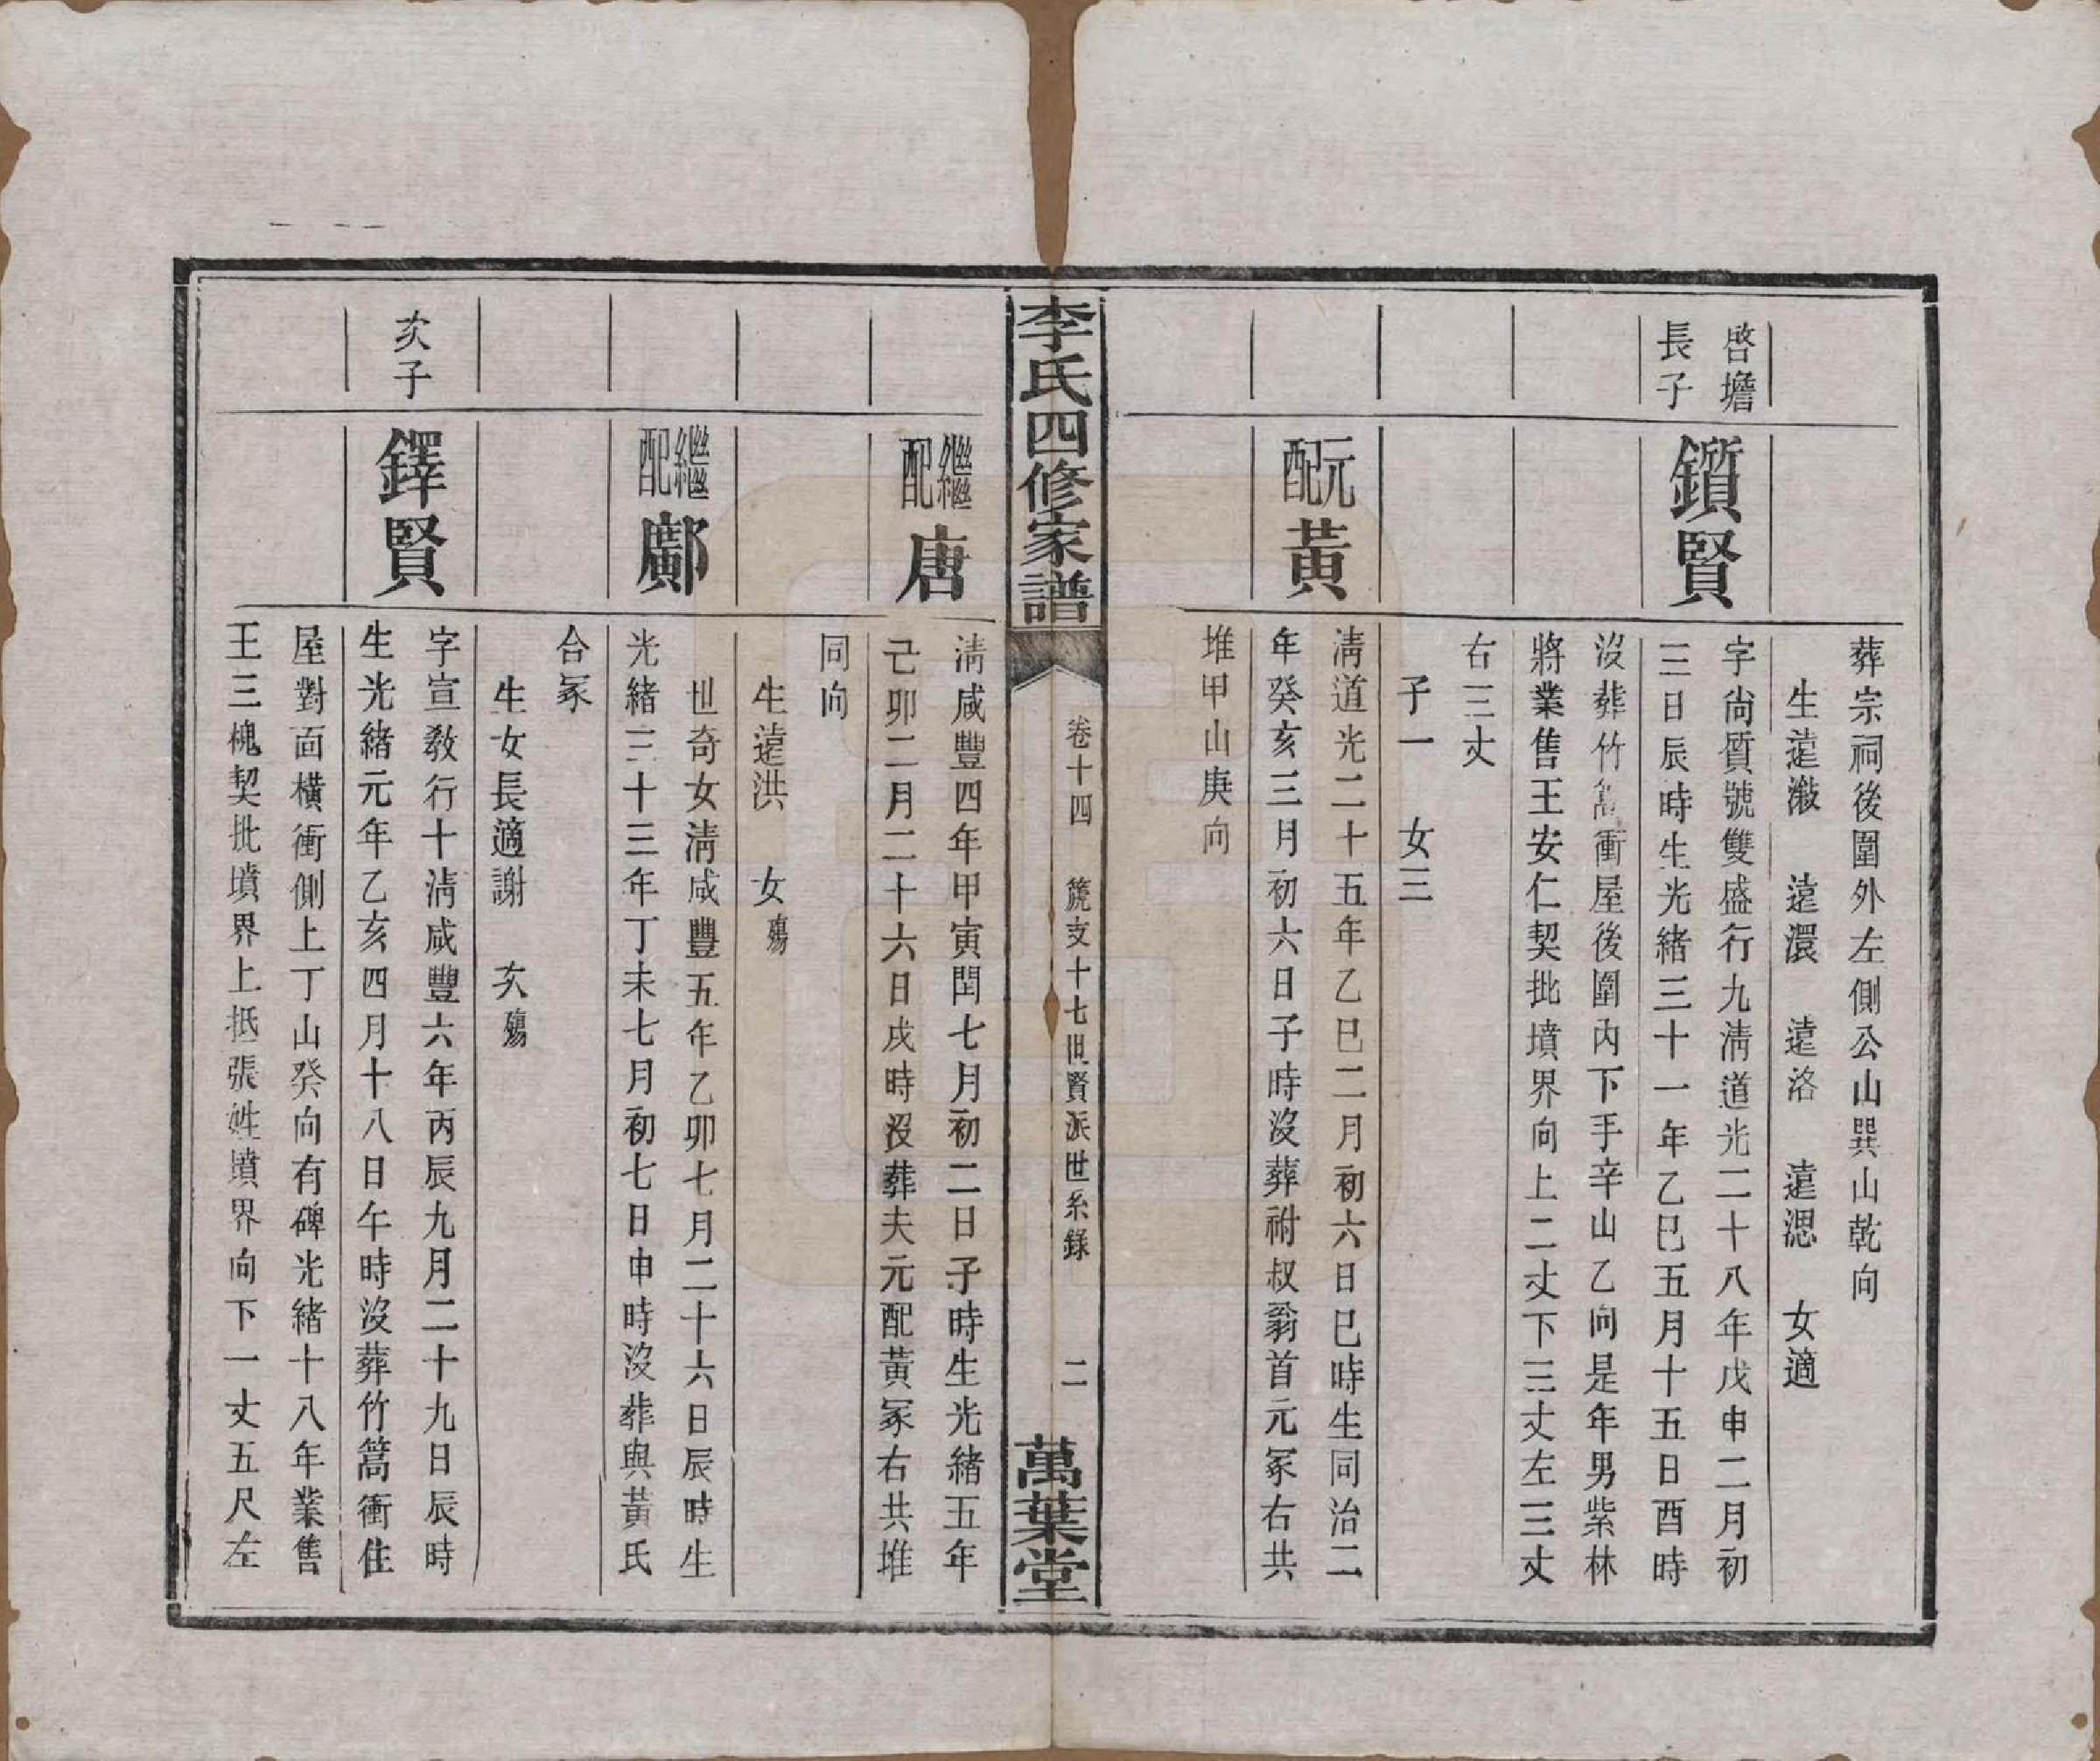 葬宗祠後圍外左側公山巽山乾向
生遠瀓　遠澴　遠洛　遠淴　女適
啓壋
長子
鑕賢
字尙質號雙盛行九淸道光二十八年戊申二月初
三日辰時生光緒三十一年乙巳五月十五日酉時
沒葬竹蒿衝屋後圍內下手辛山乙向是年男紫林
將業售王安仁契批墳界向上二丈下三丈左三丈
右三丈
子一　女三
元配
黃
淸道光二十五年乙巳二月初六日巳時生同治二
年癸亥三月初六日子時沒葬祔叔翁首元冢右共
堆甲山庚向
李氏四修家譜
卷十四　篪支十七世賢派世系錄　二
萬葉堂
繼配
唐
淸咸豐四年甲寅閏七月初二日子時生光緒五年
己卯二月二十六日戌時沒葬夫元配黃冢右共堆
同向
生遠洪　女殤
繼配
鄺
世奇女淸咸豐五年乙卯七月二十六日辰時生
光緒三十三年丁未七月初七日申時沒葬與黃氏
合冢
生女長適謝　次殤
次子
鐸賢
字宣敎行十淸咸豐六年丙辰九月二十九日辰時
生光緒元年乙亥四月十八日午時沒葬竹蒿衝住
屋對面橫衝側上丁山癸向有碑光緒十八年業售
王三槐契批墳界上抵張姓墳界向下一丈五尺左